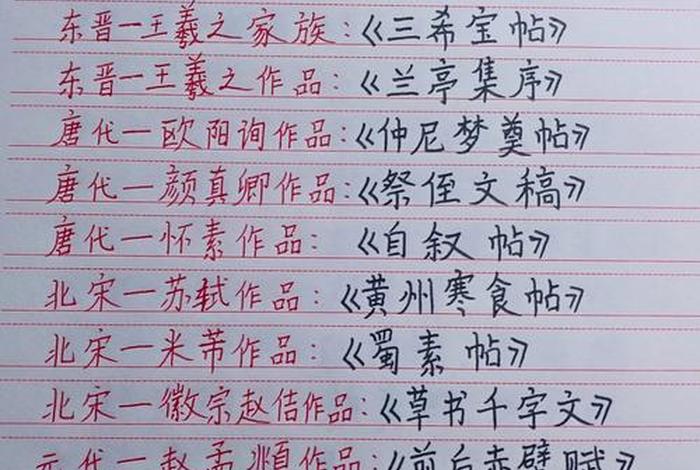 东晋一王羲之家族:《三希宝帖》
东晋一王羲之作品:《兰亭集序》
唐代一欧阳询作品:《仲尼梦奠帖》
唐代一颜真卿作品:《祭侄文稿》
唐代一怀素作品:《自叙帖》
北宋一苏轼作品:《黄州寒食帖》
北宋一米芾作品:《蜀素帖》
北宋一徽宗赵佶作品:《草书千字文》
元代一赵孟頫作品:《前后赤壁赋》